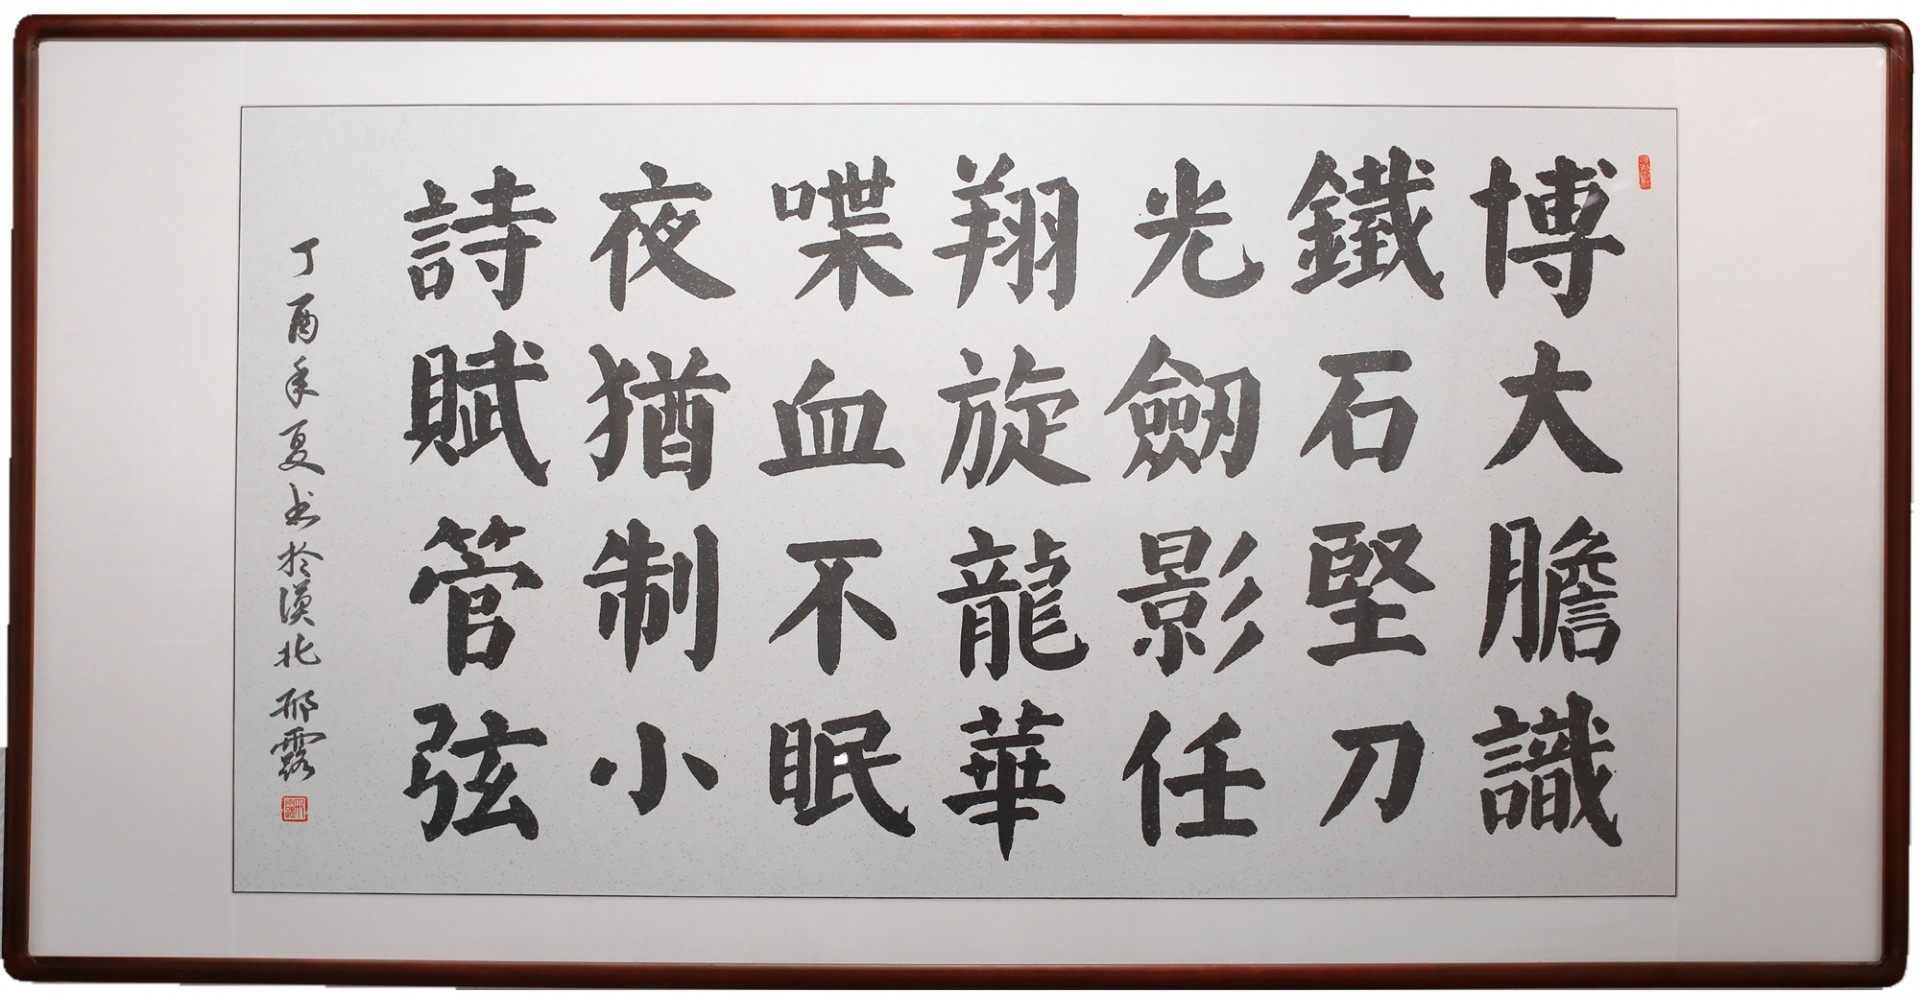 博大膽識
鐵石堅刀
光劒影任
翔旋龍華
喋血不眠
夜猶制小
詩賦管弦
丁酉年夏书於漠北邢露